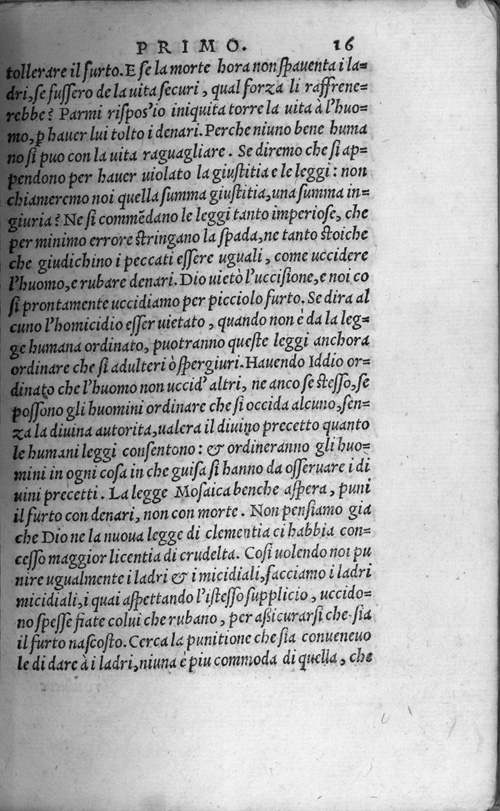 PRIMO. 16
tollerare il furto. E se la morte hora non spauenta i la-
dri, se fussero de la uita securi, qual forza li raffrene-
rebbe? Parmi rispos'io iniquita torre la uita à l'huo-
mo, ꝑ hauer lui tolto i denari. Perche niuno bene huma
no si puo con la uita raguagliare. Se diremo che si ap-
pendono per hauer uiolato la giustitia e le leggi: non
chiameremo noi quella summa giustitia, una summa in-
giuria? Ne si commẽdano le leggi tanto imperiose, che
per minimo errore stringano la spada, ne tanto stoiche
che giudichino i peccati essere uguali, come uccidere
l'huomo, e rubare denari. Dio uietò l'uccisione, e noi co
si prontamente uccidiamo per picciolo furto. Se dira al
cuno l'homicidio esser uietato, quando non è da la leg-
ge humana ordinato, puotranno queste leggi anchora
ordinare che si adulteri ò spergiuri. Hauendo Iddio or-
dinato che l'huomo non uccid' altri, ne anco se stesso, se
possono gli huomini ordinare che si occida alcuno, sen-
za la diuina autorita, ualera il diuino precetto quanto
le humani leggi consentono: & ordineranno gli huo-
mini in ogni cosa in che guisa si hanno da osseruare i di
uini precetti. La legge Mosaica benche aspera, puni
il furto con denari, non con morte. Non pensiamo gia
che Dio ne la nuoua legge di clementia ci habbia con-
cesso maggior licentia di crudelta. Cosi uolendo noi pu
nire ugualmente i ladri & i micidiali, facciamo i ladri
micidiali, i quai aspettando l'istesso supplicio, uccido-
no spesse fiate colui che rubano, per assicurarsi che sia
il furto nascosto. Cerca la punitione che sia conueneuo
le di dare à i ladri, niuna è piu commoda di quella, che